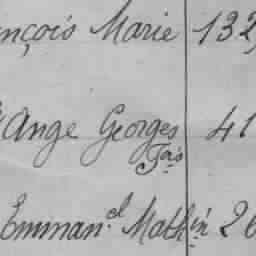 nçois Marie 132
Ange Georges 41
Fois
Emman.el Math in 26